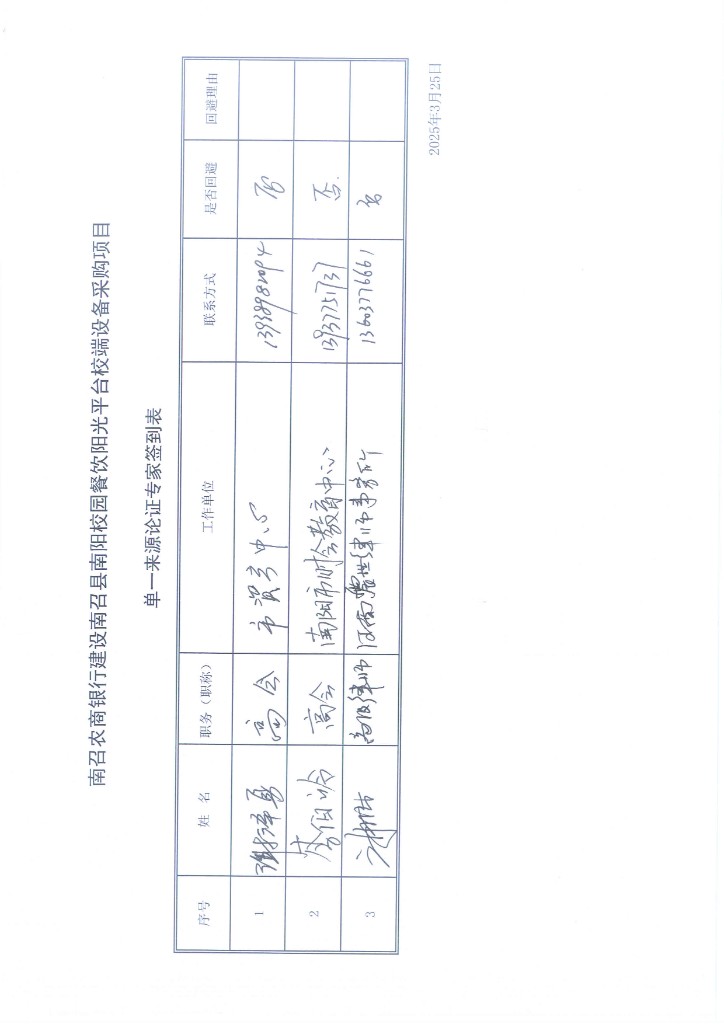 南召农商银行建设南召县南阳校园餐饮阳光平台校端设备采购项目
单一来源论证专家签到表
序号 姓 名 职务（职称） 工作单位 联系方式 是否回避 回避理由
1 高会 市资产中心 否
2 高会 南阳市财会教育中心 13937751737 否.
3 高级律师 律师事务所 13603776661 否
2025年3月25日